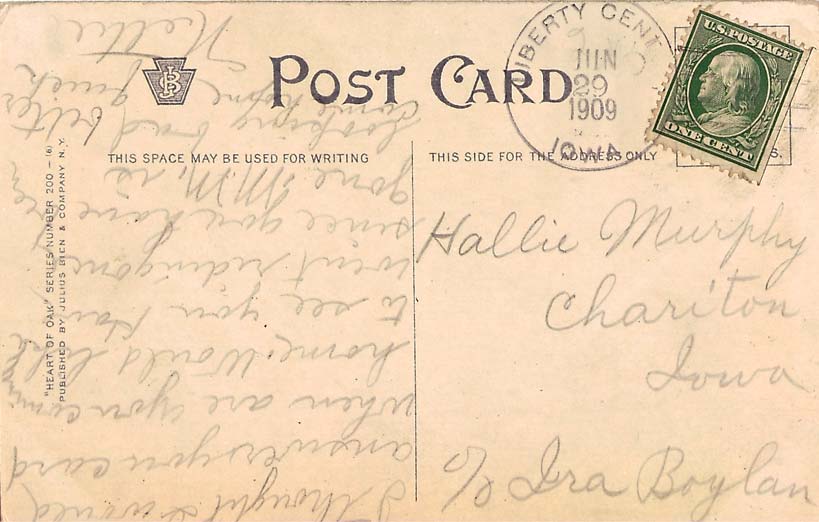 POST CARD
THIS SPACE MAY BE USED FOR WRITING
THIS SIDE FOR THE ADDRESS ONLY
"HEART OF OAK" SERIES NUMBER 200 - (6)
PUBLISHED BY JULIUS BIEN & COMPANY N.Y.
LIBERTY CENT
JUN
29
1909
IOWA
U.S. POSTAGE
ONE CENT
Hallie Murphy
Chariton
Iowa
c/o Ira Boylan
I thought I would
answer you card
when are you coming
home. Would like
to see you. Hav
went riding one
since you have been
gone M.M. is
looking bad better
come home quick
Nettie